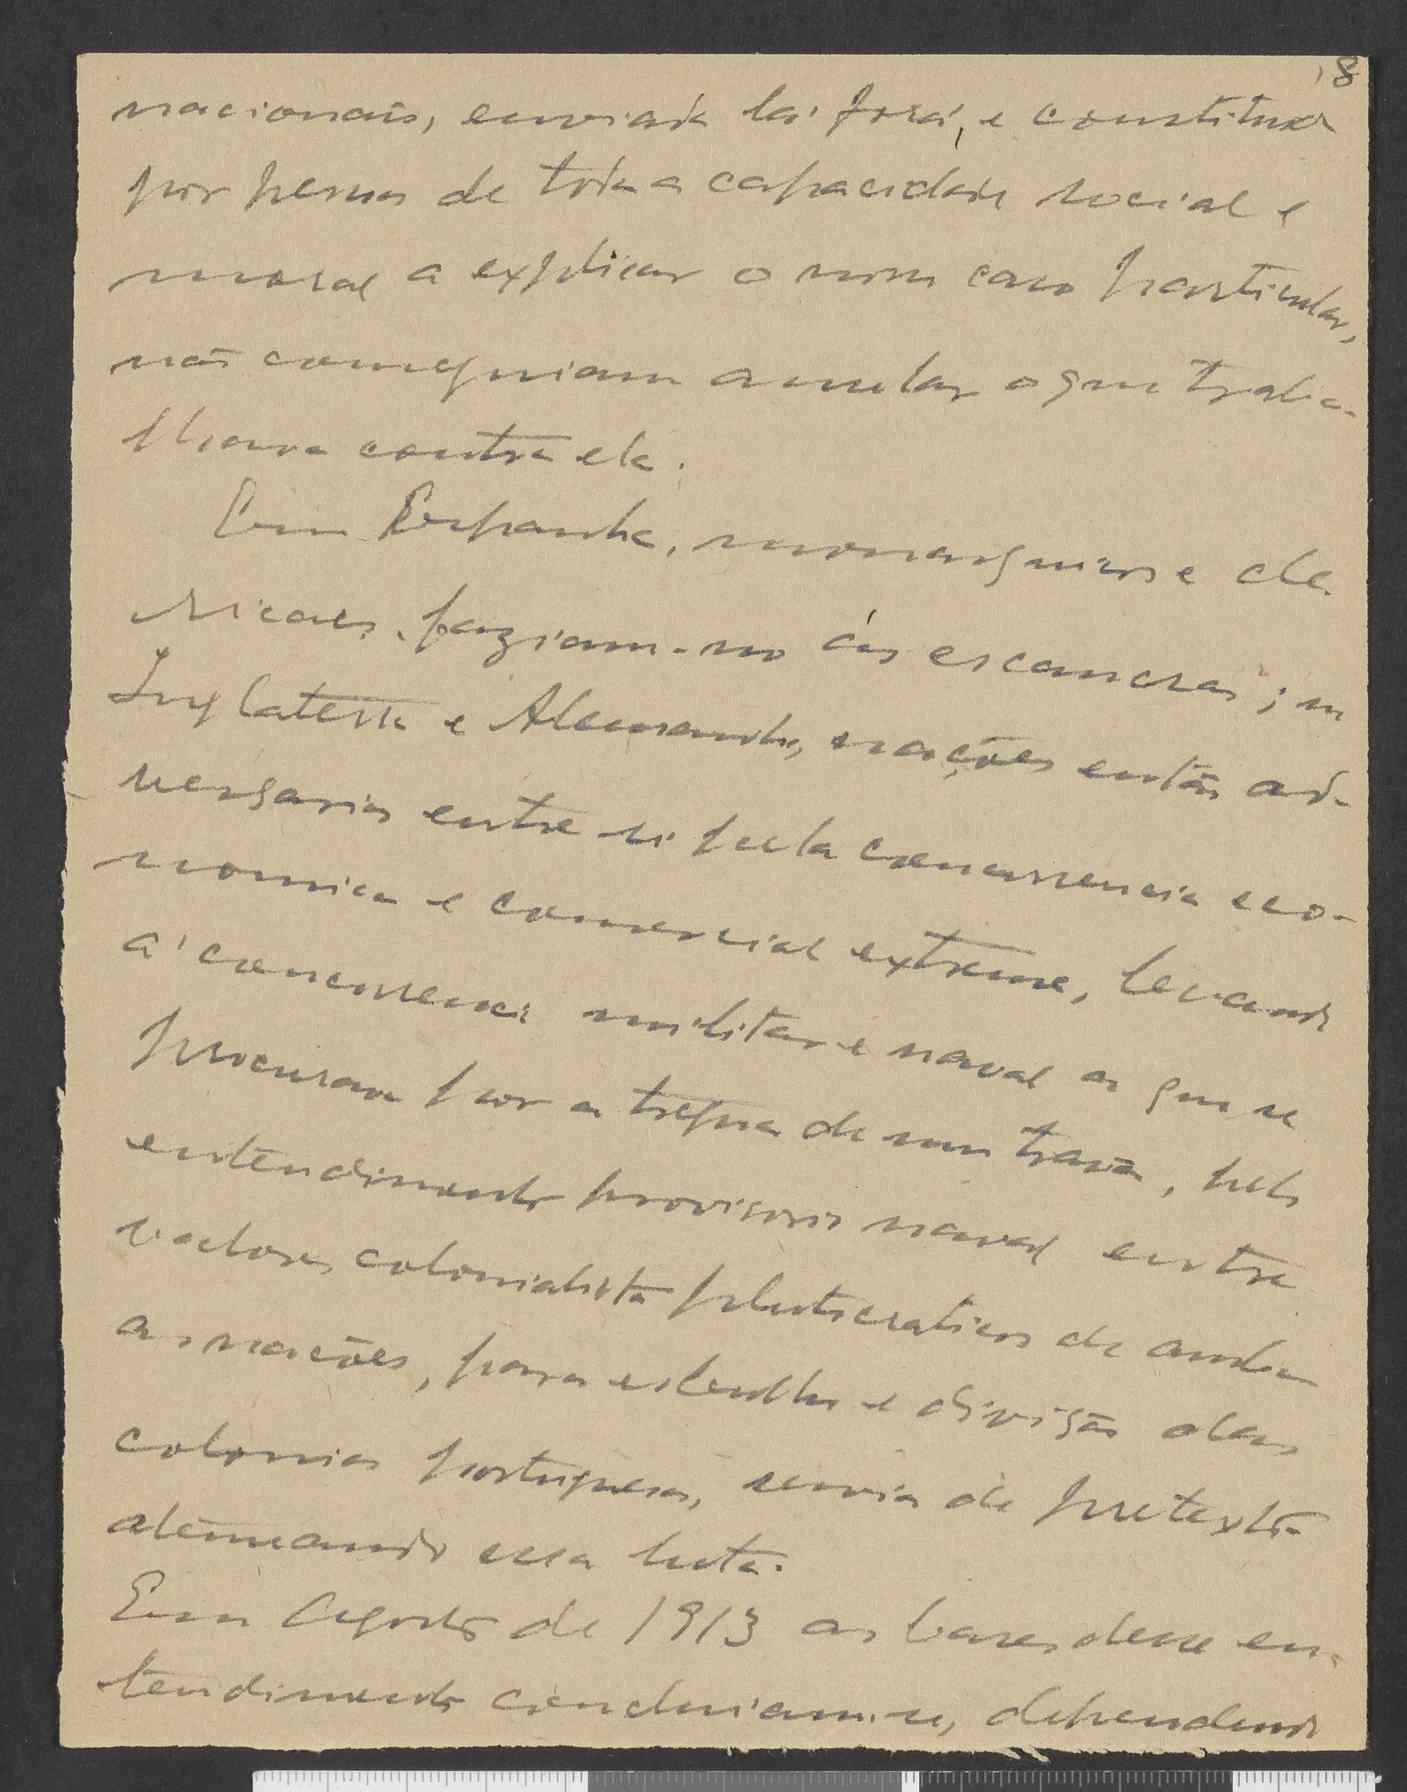 8
nacionais, enviada lá fóra, e constituida
por pessoas de toda a capacidade social e
moral a explicar o nosso caso particular,
não conseguiam anular o que traba-
lhava contra ela.
Em Espanha, monarquicos e cle-
ricaes, faziam-no ás escancaras; em
Inglaterra e Alemanha, nações então ad-
versarias entre si pela concurrencia eco-
nomica e comercial extreme, levando
á concurrencia militar e naval a que se
procurava pôr a tregua de um travão, pelo
entendimento provisorio naval entre
valores colonialista plutocraticos de ambas
as nações, para esbulho e divisão das
colonias portuguesas, servia de pretexto
alimentando essa luta.
Em Agosto de 1913 as bases desse en-
tendimento concluiam-se, dependendo